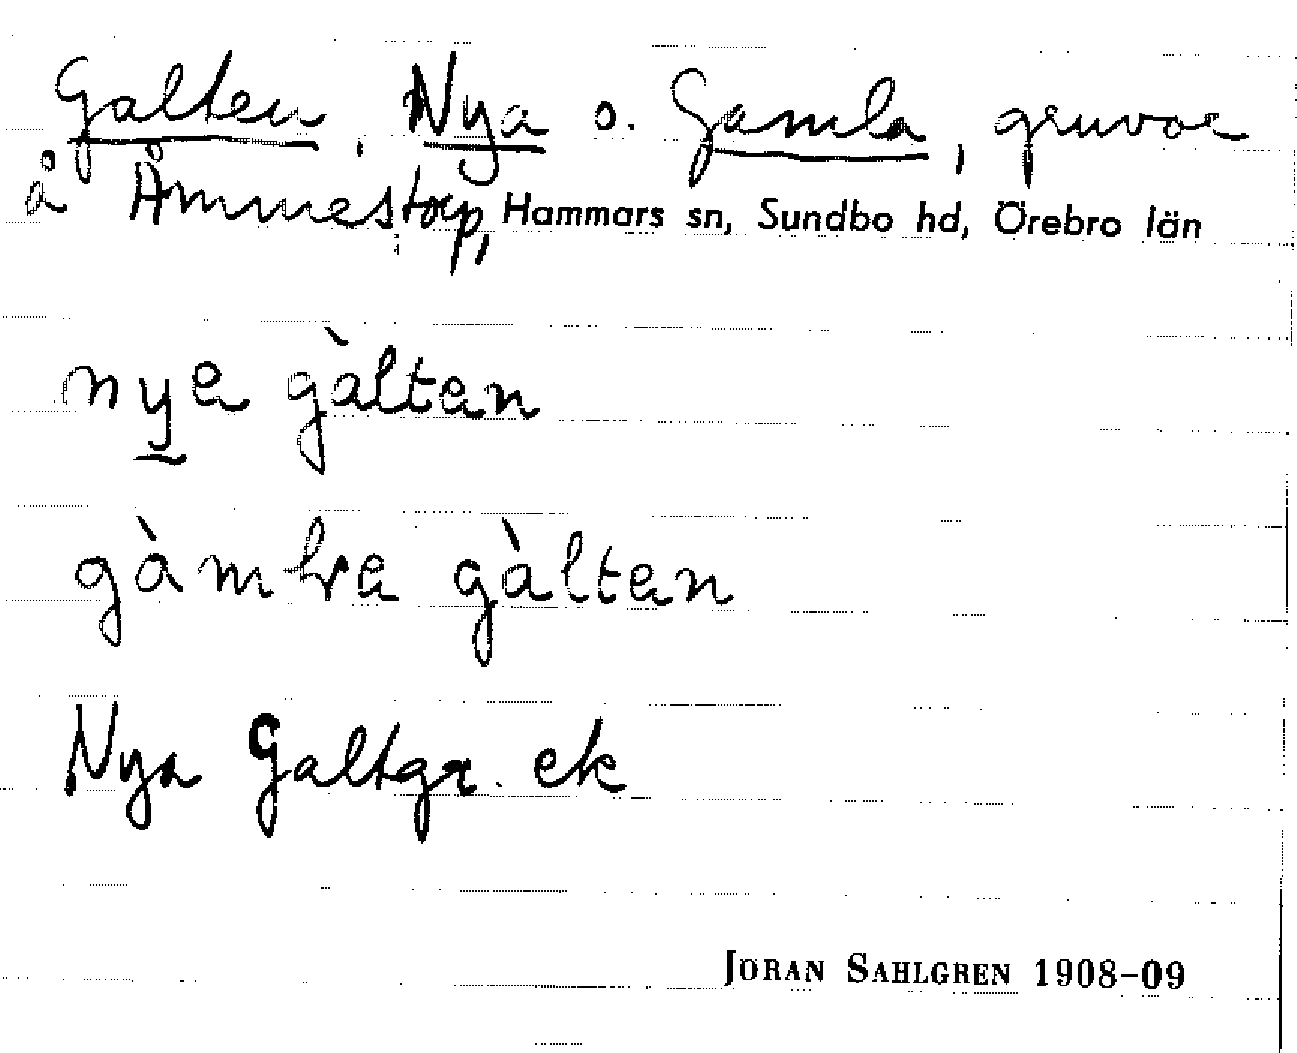 Galten, Nya o. Gamla, gruvor
å Åmmestorp, Hammars sn, Sundbo hd, Örebro län
nya gàltan
gàmla gàltan
Nya Galtgr. ek
JÖRAN SAHLGREN 1908–09